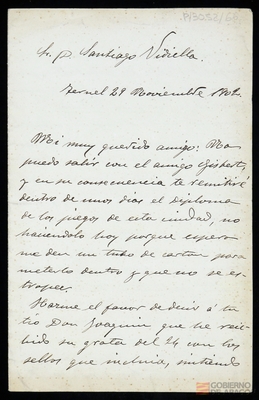 Sr. D. Santiago Vidiella.
Teruel 29 Noviembre 1902.
Mi muy querido amigo: No
puedo salir con el amigo Gisbert,
y en su consecuencia te remitiré
dentro de unos dias el diploma
de los juegos de esta ciudad, no
haciéndolo hoy porque espero
me den un tubo de carton para
meterlo dentro y que no se es-
tropee.
Hazme el favor de decir á tu
tío Don Joaquin que he reci-
bido su grata del 24 con los
sellos que incluia, sintiendo
GOBIERNO
DE ARAGON